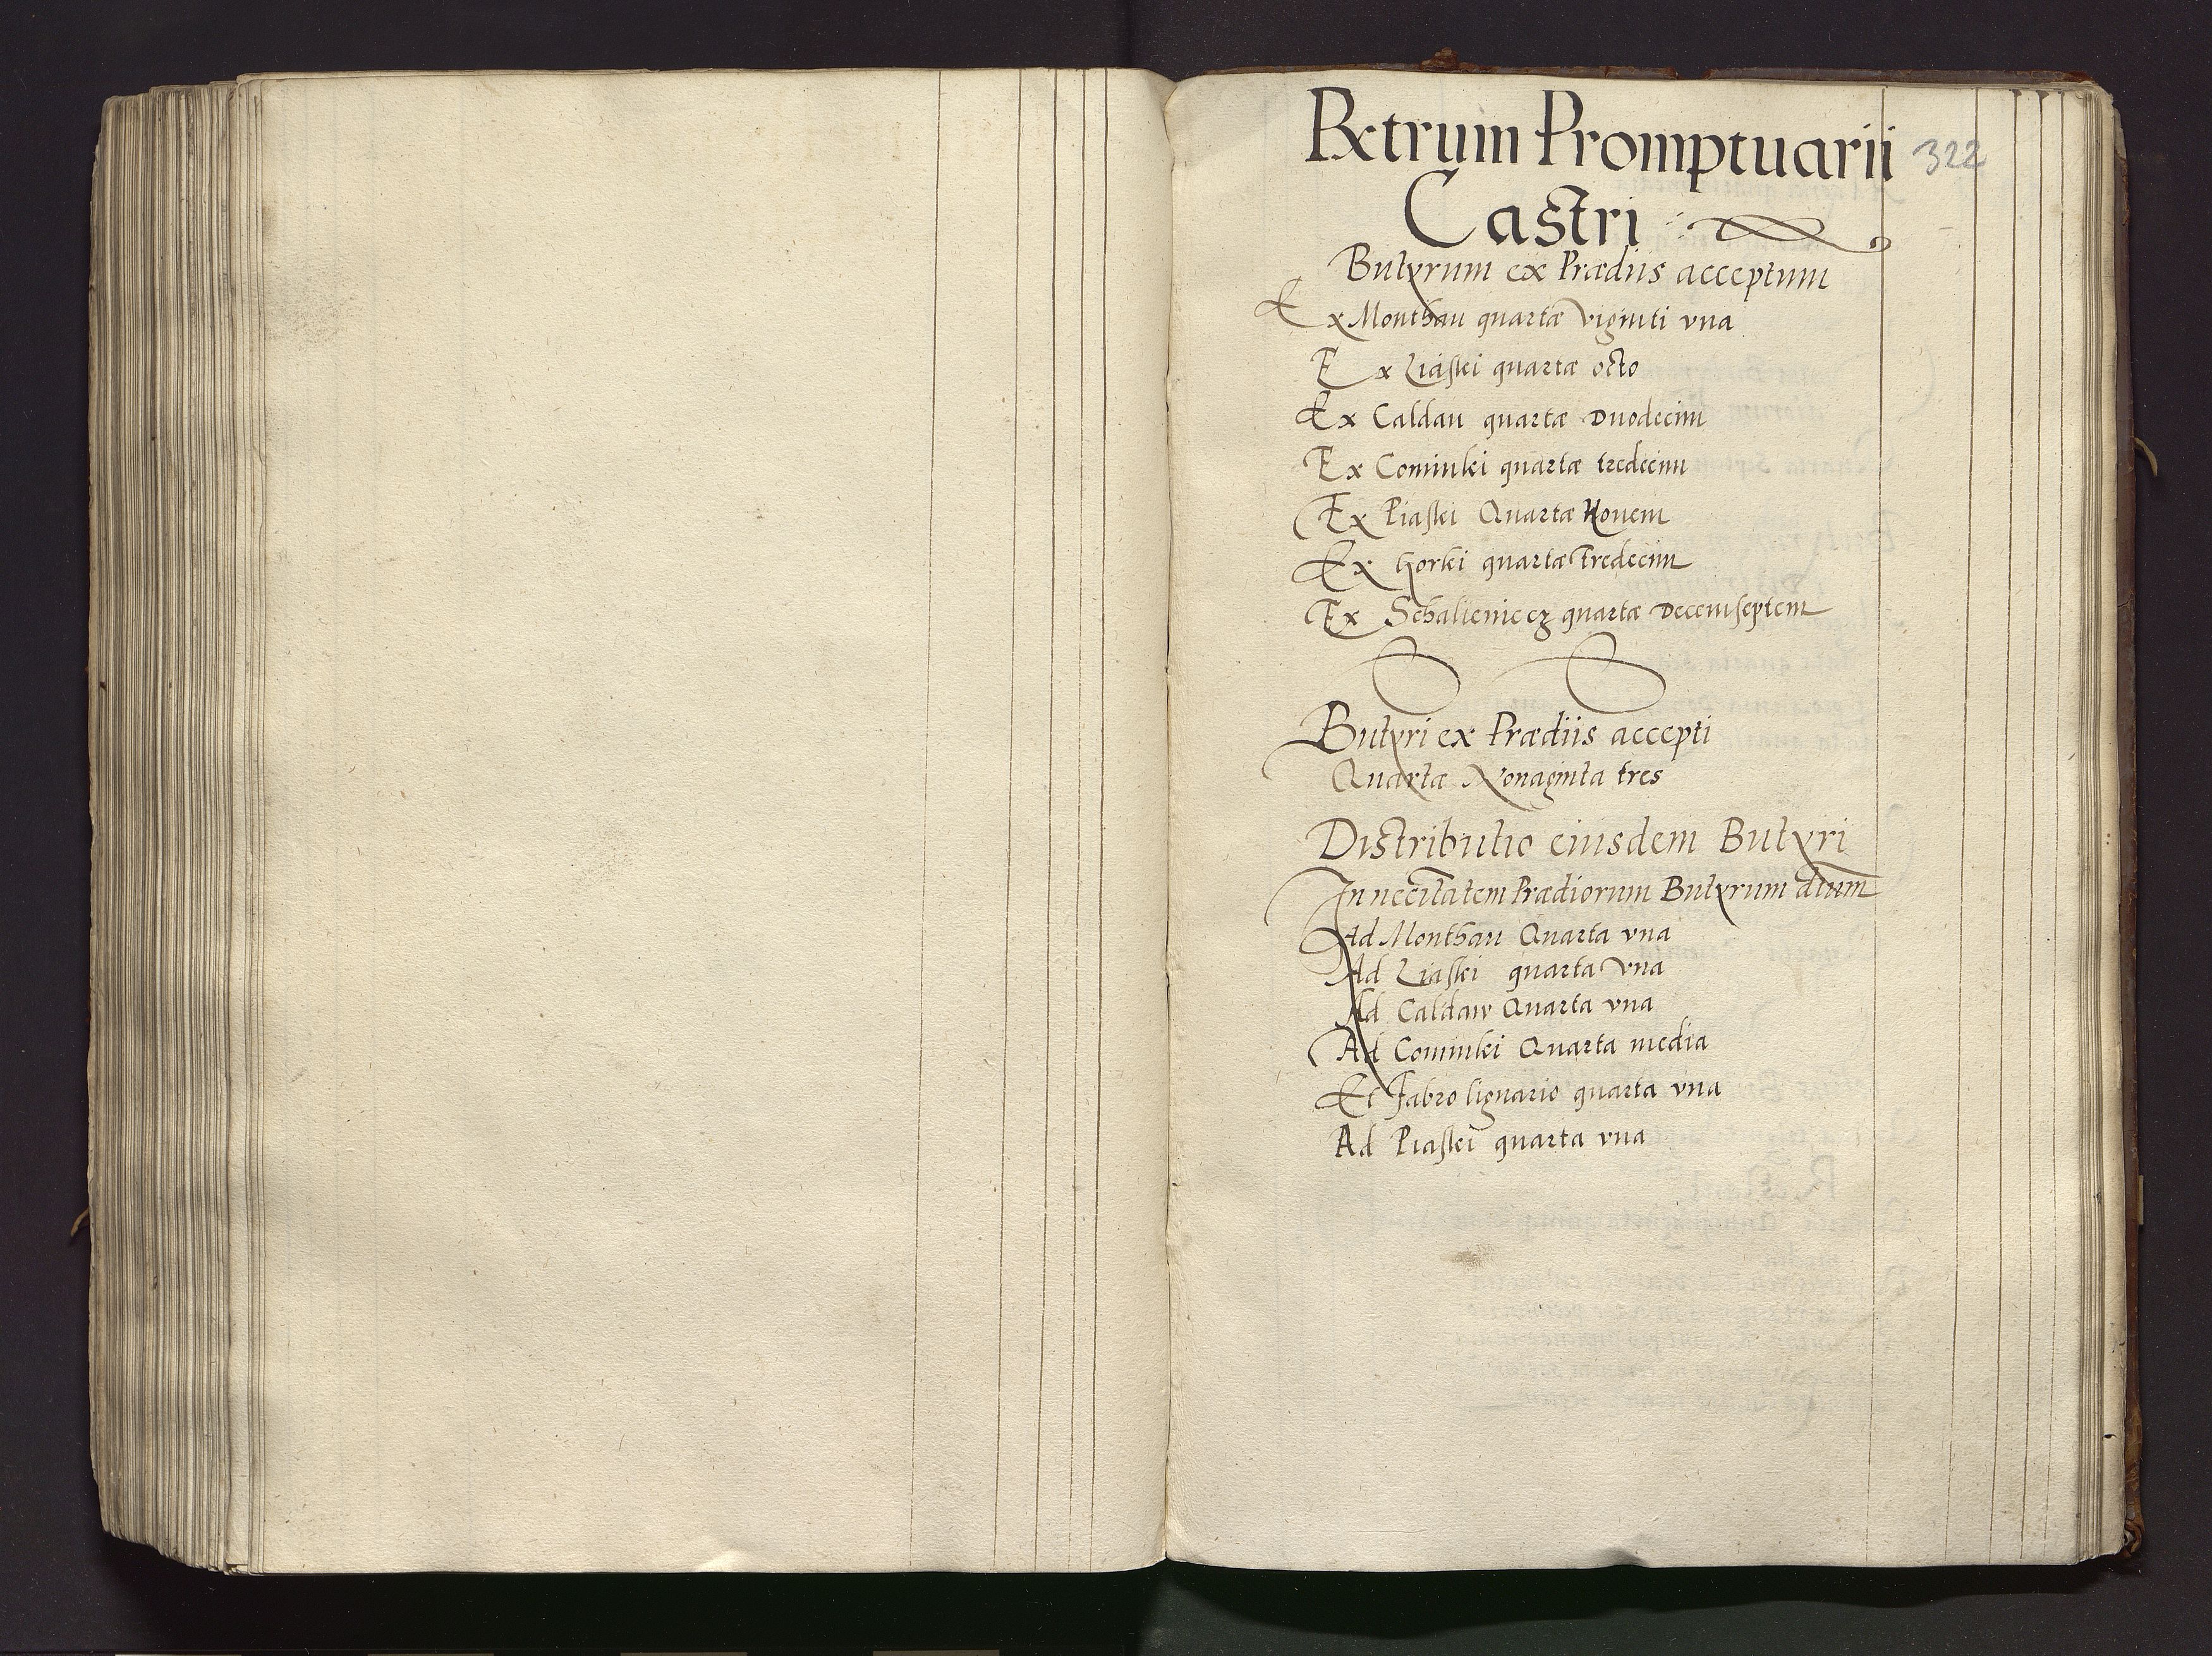 Rxtrum Promptuarii 322
Castri
Butyrum ex Prædiis acceptum
Ex Monthau quartæ viginti vna
Ex Liaskei quartæ octo
Ex Caldau quartæ Duodecim
Ex Cominkei quartæ tredecim
Ex Piaskei Quartæ Nouem
Ex Horkei quartæ Tredecim
Ex Schalieniecz quartæ Decemseptem
Butyri ex Prædiis accepti
Quartæ Nonaginta tres
Distributio eiusdem Butyri
In necitatem Prædiorum Butyrum dtum
Ad Monthau Quarta vna
Ad Liaskei quarta vna
Ad Caldaw Quarta vna
Ad Cominkei Quarta media
Et Fabro lignario quarta vna
Ad Piaskei quarta vna